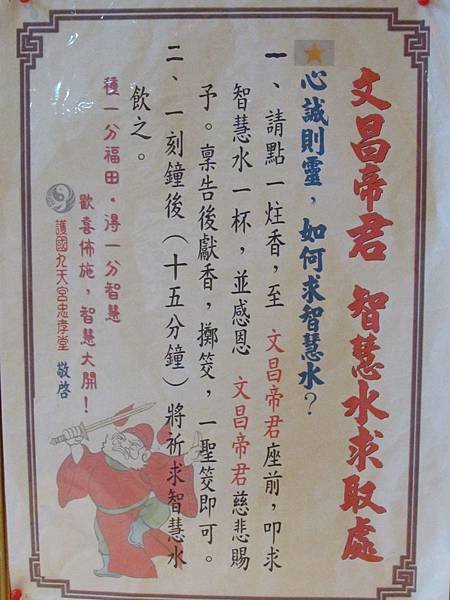 文昌帝君 智慧水求取處
心誠則靈，如何求智慧水？
一、請點一炷香，至 文昌帝君座前，叩求
智慧水一杯，並感恩 文昌帝君慈悲賜
予。稟告後獻香，擲筊，一聖筊即可。
二、一刻鐘後（十五分鐘）將祈求智慧水
飲之。
種一分福田．得一分智慧
歡喜佈施，智慧大開！
護國九天宮忠孝堂 敬啓